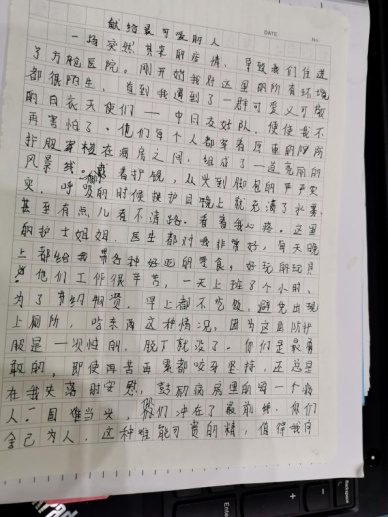 献给最可爱的人
DATE
一场突然其来的疫情，导致我们住进
了方舱医院。刚开始我对这里的所有环境
都很陌生，直到我遇到了一群可爱又可敬
的白衣天使们——中日友好队，使使我不
再害怕了。他们每个人都穿着厚重的防
护服穿梭在病房之间，组成了一道亮丽的
风景线。戴着护目镜，从头到脚包的严严实
实，呼吸的时候换护目镜上就充满了水雾，
甚至有点儿看不清路。看着我心疼。这里
的护士姐姐、医生都对我非常好，每天晚
上都给我带各种好吃的零食，好玩的玩具
他们工作很辛苦，一天上班了个小时，
为了节约物资，早上都不吃饭，避免出现
上厕所，吃东西这种情况，因为这身防护
服是一次性的，脱下就没了。你们是最勇
敢的。即使再苦再累都咬牙坚持，还总是
在我失落时安慰，鼓励病房里的每一个病
人。国难当头，你们冲在了最前线，你们
舍己为人，这种难能可贵的精，值得我
Enter
Shift
Ctrl
PrtSc